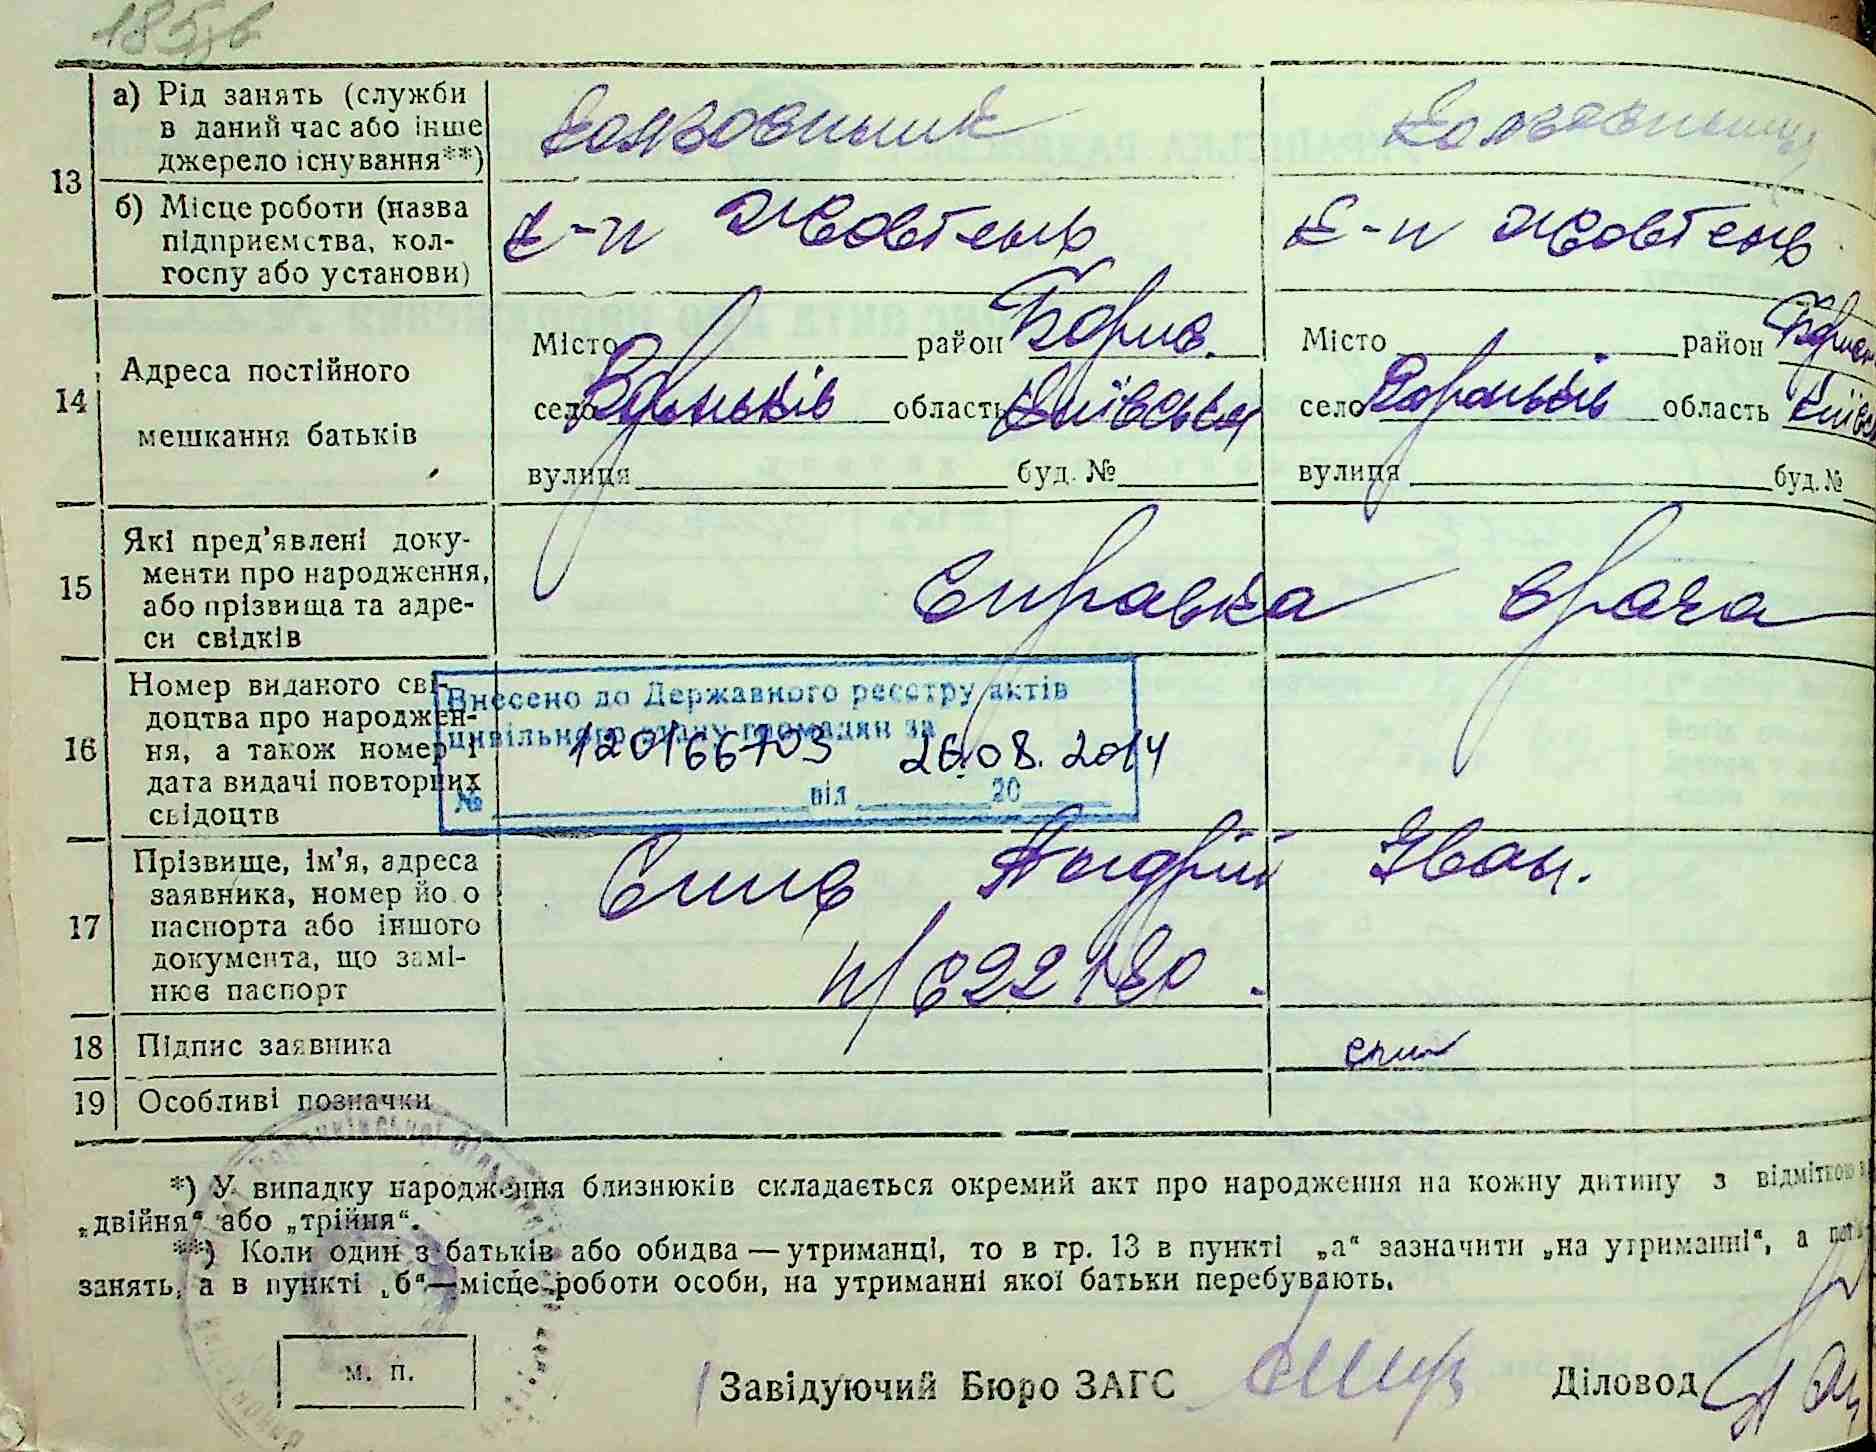 185зв
13
а) Рід занять (служби
в даний час або інше
джерело існування**)
колгоспник
колгоспниця
б) Місце роботи (назва
підприємства, кол-
госпу або установи)
к-п Жовтень
к-п Жовтень
14
Адреса постійного
мешкання батьків
Місто район Борис.
село Вороньків область Київська
вулиця буд. №
Місто район
село Вороньків область
вулиця буд. №
15
Які пред'явлені доку-
менти про народження,
або прізвища та адре-
си свідків
Справка врача
16
Номер виданого сві-
доцтва про народжен-
ня, а також номер і
дата видачі повторних
свідоцтв
Внесено до Державного реєстру актів
цивільного стану громадян за
120166703 26.08.2014
№ від 20
17
Прізвище, ім'я, адреса
заявника, номер йо о
паспорта або іншого
документа, що замі-
нює паспорт
Андрій Іван.
18
Підпис заявника
19
Особливі позначки
*) У випадку народження близнюків складається окремий акт про народження на кожну дитину з відміткою
„двійня“ або „трійня“.
**) Коли один з батьків або обидва — утриманці, то в гр. 13 в пункті „а“ зазначити „на утриманні“, а
занять, а в пункті „б“—місце роботи особи, на утриманні якої батьки перебувають.
М. П.
Завідуючий Бюро ЗАГС
Діловод